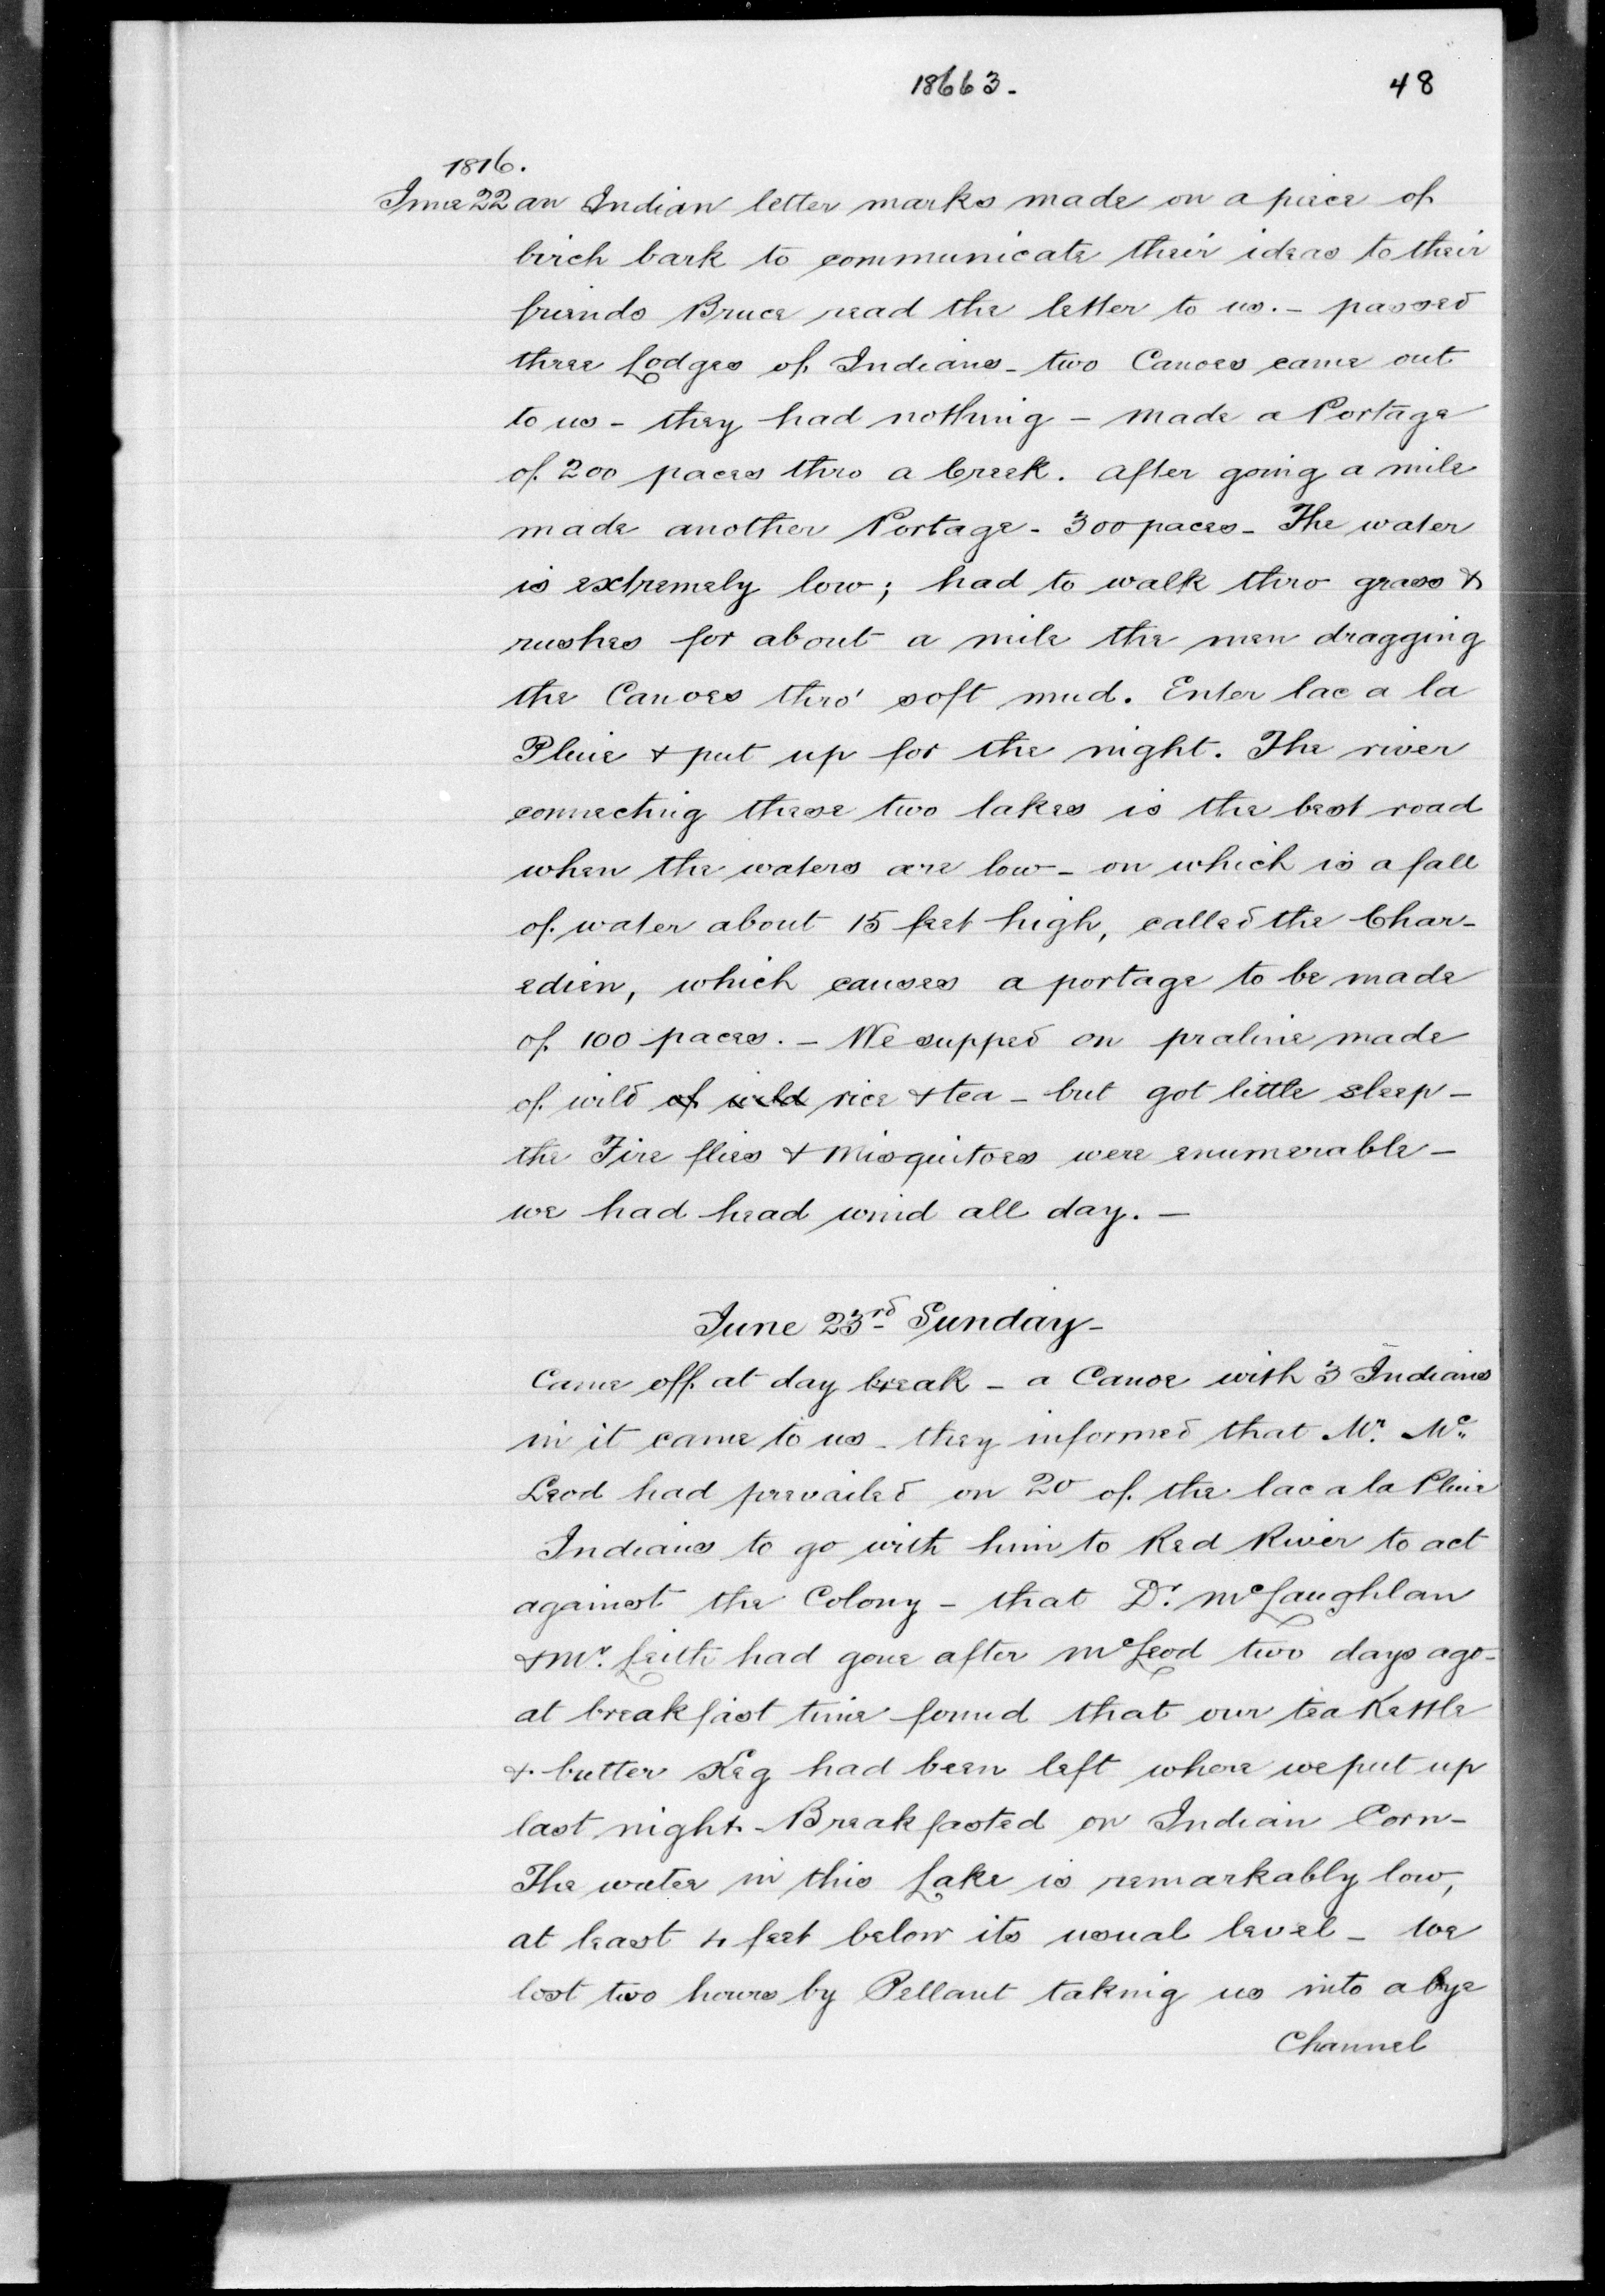 18663. 48
1816.
June 22 an Indian letter marks made on a piece of
birch bark to communicate their ideas to their
friends Bruce read the letter to us. - passed
three Lodges of Indians - two Canoes came out
to us - they had nothing - made a Portage
of 200 paces thro a Creek. after going a mile
made another Portage - 300 paces - The water
is extremely low; had to walk thro grass &
rushes for about a mile the men dragging
the Canoes thro' soft mud. Enter lac a la
Pluie & put up for the night. The river
connecting these two lakes is the best road
when the waters are low - on which is a fall
of water about 15 feet high, called the Char-
edien, which causes a portage to be made
of 100 paces. - We supped on praline made
of wild of wild rice & tea - but got little sleep -
the Fire flies & Misquitoes were enumerable -
we had head wind all day. -
June 23rd Sunday -
Came off at day break - a Canoe with 3 Indians
in it came to us - they informed that Mr. Mc.
Leod had prevailed on 20 of the lac a la Pluie
Indians to go with him to Red River to act
against the Colony - that Dr. McLaughlan
& Mr. Leith had gone after McLeod two days ago -
at breakfast time found that our tea Kettle
& butter Keg had been left where we put up
last night - Breakfasted on Indian Corn -
The water in this Lake is remarkably low,
at least 4 feet below its usual level - we
lost two hours by Pellant taking us into a bye
Channel